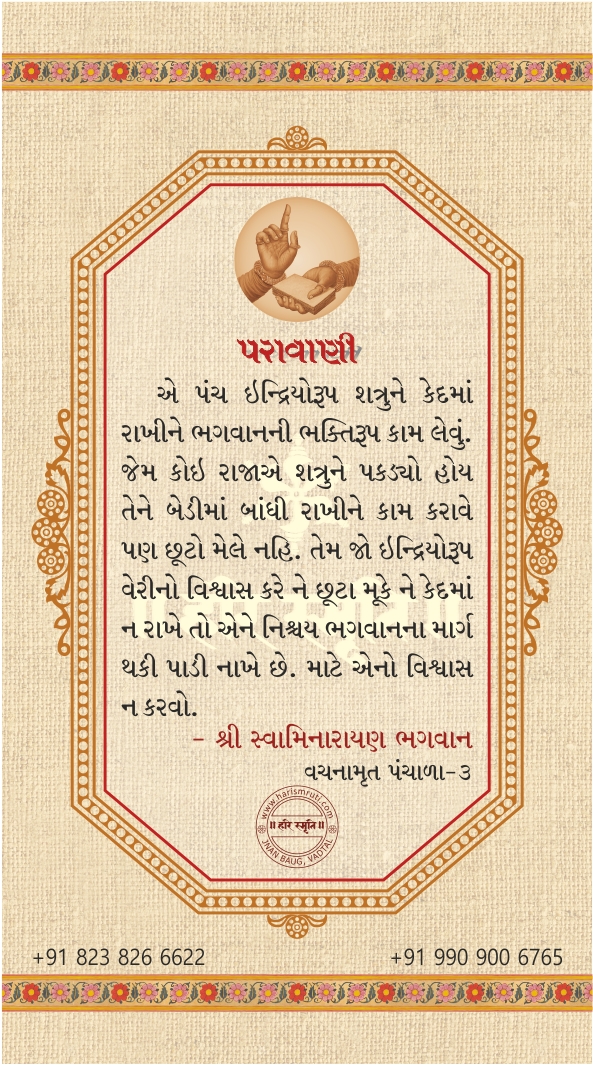 પરાવાણી
એ પંચ ઇન્દ્રિયોરૂપ શત્રુને કેદમાં
રાખીને ભગવાનની ભક્તિરૂપ કામ લેવું.
જેમ કોઇ રાજાએ શત્રુને પકડ્યો હોય
તેને બેડીમાં બાંધી રાખીને કામ કરાવે
પણ છૂટો મેલે નહિ. તેમ જો ઇન્દ્રિયોરૂપ
વેરીનો વિશ્વાસ કરે ને છૂટા મૂકે ને કેદમાં
ન રાખે તો એને નિશ્ચય ભગવાનના માર્ગ
થકી પાડી નાખે છે. માટે એનો વિશ્વાસ
ન કરવો.
- શ્રી સ્વામિનારાયણ ભગવાન
વચનામૃત પંચાળા-૩
www.harismruti.com
॥ हरि स्मृति ॥
JNAN BAUG, VADTAL
+91 823 826 6622
+91 990 900 6765